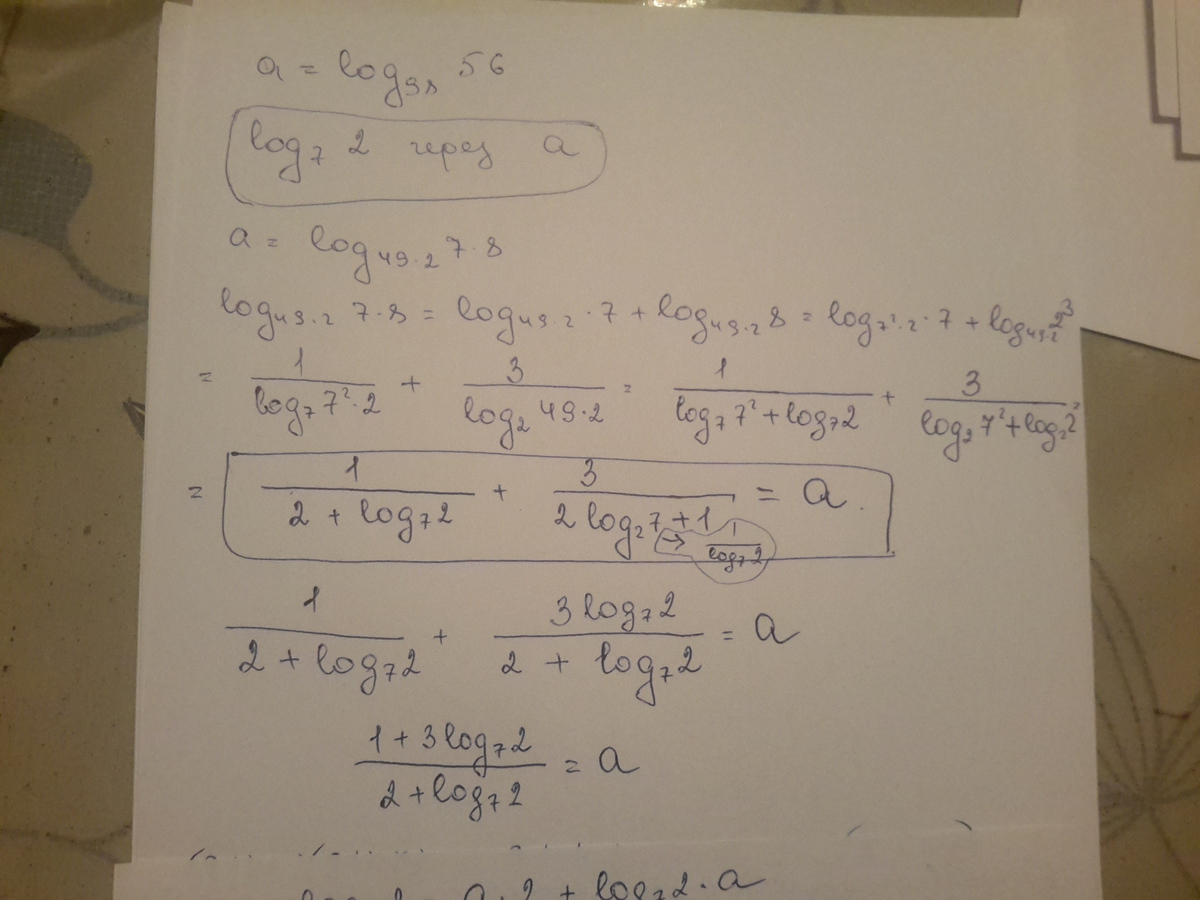 a = log₉₈ 56
log₇ 2 через a
a = log₄₉.₂ 7·8
log₄₉.₂ 7·8 = log₄₉.₂ · 7 + log₄₉.₂ 8 = log_{7².2} · 7 + log₄₉.₂ 2³
= 1/(log₇ 7²·2) + 3/(log₂ 49·2) = 1/(log₇ 7² + log₇ 2) + 3/(log₂ 7² + log₂ 2)
= 1/(2 + log₇ 2) + 3/(2 log₂ 7 + 1) = a.
→ 1/(log₇ 2)
1/(2 + log₇ 2) + (3 log₇ 2)/(2 + log₇ 2) = a
(1 + 3 log₇ 2)/(2 + log₇ 2) = a
a·2 + log₇ 2·a